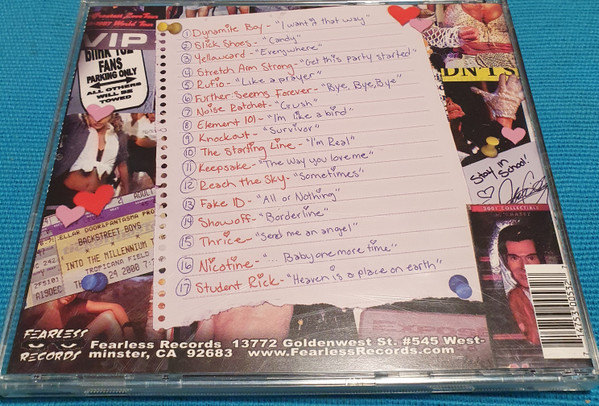 Greatest Love Tour
1987 World Tour
VIP
blink 182
FANS
PARKING ONLY
ALL OTHERS
WILL BE
TOWED
① Dynamite Boy - "I want it that way"
② Slick Shoes - "Candy"
③ Yellowcard - "Everywhere"
④ Stretch Arm Strong - "Get this party started"
⑤ Rufio - "Like a prayer"
⑥ Further Seems Forever - "Bye, Bye, Bye"
⑦ Noise Ratchet - "Crush"
⑧ Element 101 - "I'm like a bird"
⑨ Knockout - "Survivor"
⑩ The Starting Line - "I'm Real"
⑪ Keepsake - "The way you love me"
⑫ Reach the Sky - "Sometimes"
⑬ Fake ID - "All or Nothing"
⑭ Showoff - "Borderline"
⑮ Thrice - "Send me an angel"
⑯ Nicotine - "... Baby one more time"
⑰ Student Rick - "Heaven is a place on earth"
Stay in
School!
2001 COLLECTIBLE
CELLAR DOOR/FANTASMA PRO
BACKSTREET BOYS
INTO THE MILLENNIUM T
TROPICANA FIELD
24 2000
FEARLESS
RECORDS
Fearless Records 13772 Goldenwest St. #545 West-
minster, CA 92683 www.FearlessRecords.com